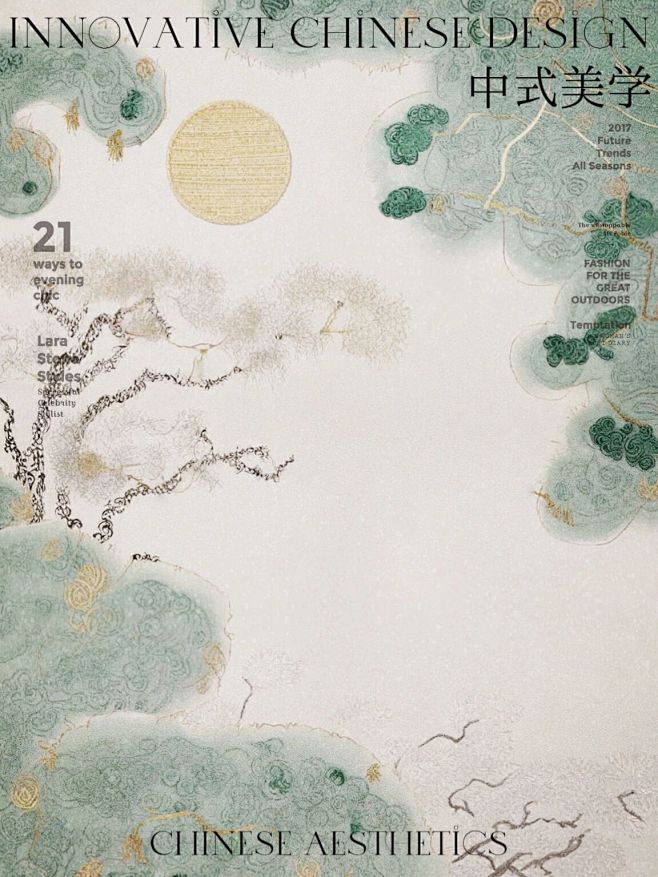 INNOVATIVE CHINESE DESIGN
中式美学
2017
Future
Trends
All Seasons
21
ways to
evening
chic
The unstoppable
FASHION
FOR THE
GREAT
OUTDOORS
Temptation
Lara
Stone
Styles
Successful
Celebrity
Stylist
CHINESE AESTHETICS